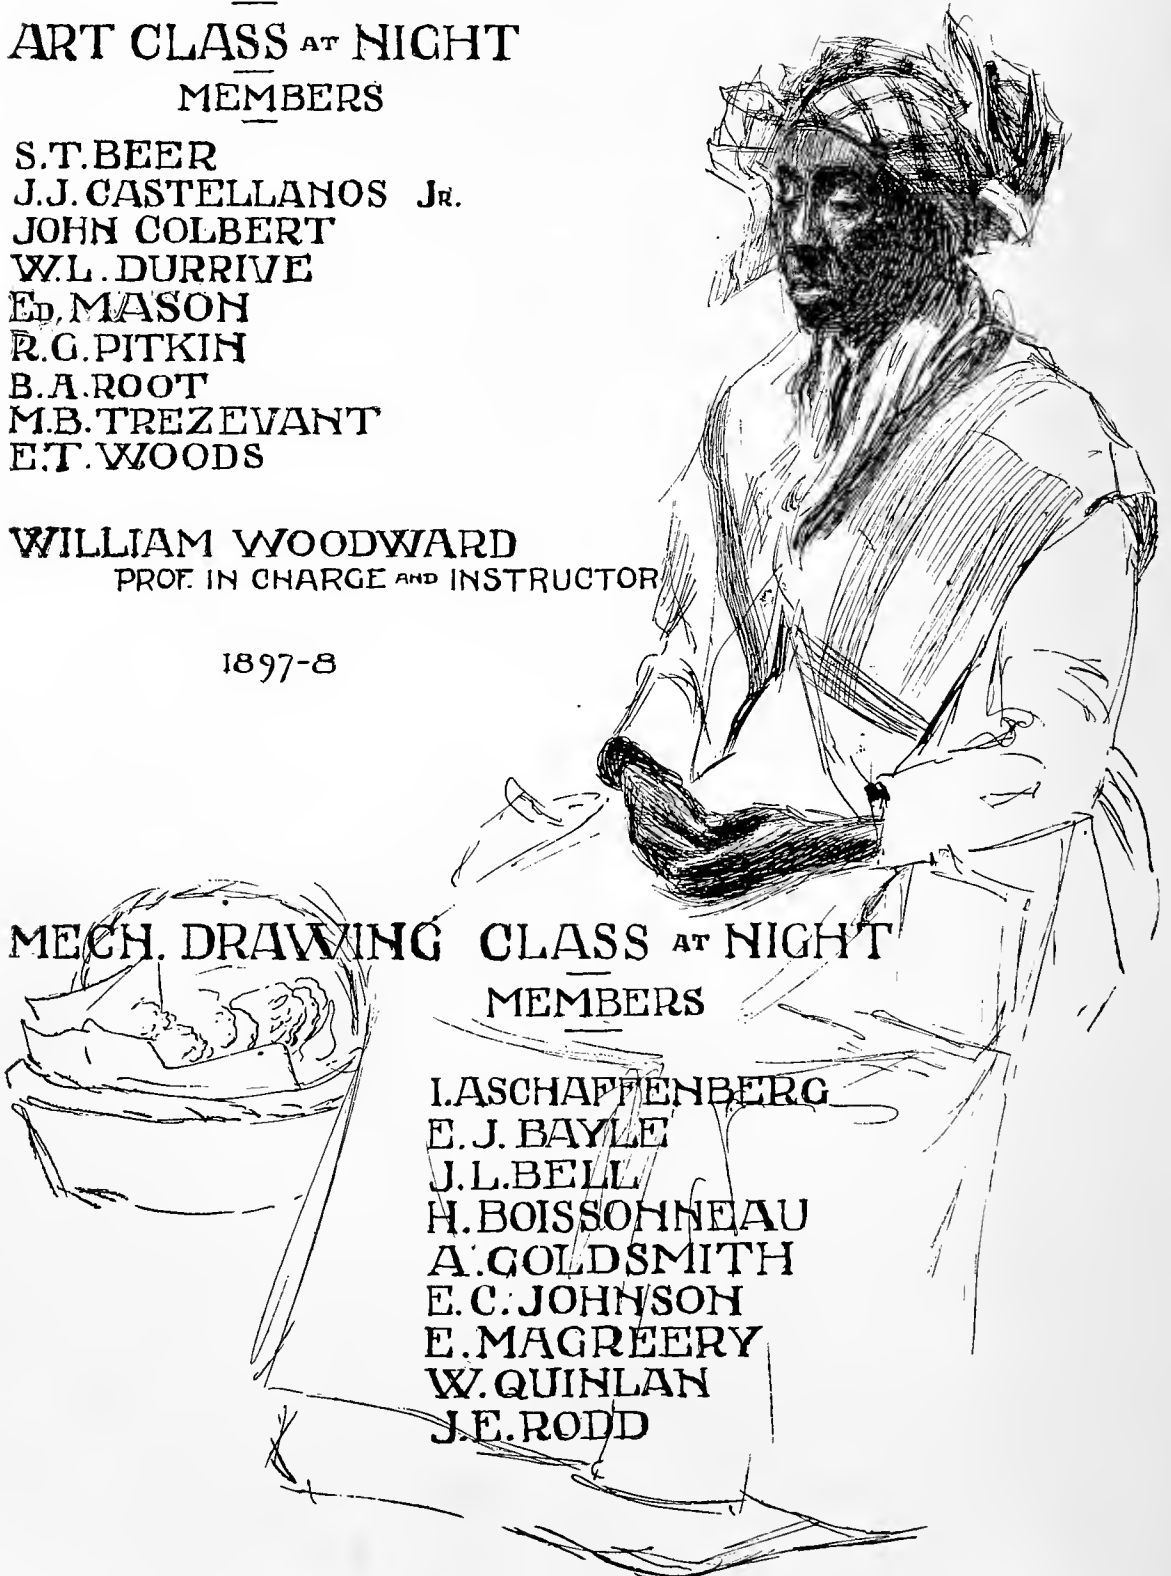 ART CLASS AT NIGHT
MEMBERS
S.T. BEER
J.J. CASTELLANOS JR.
JOHN COLBERT
W.L. DURRIVE
ED. MASON
R.G. PITKIN
B.A. ROOT
M.B. TREZEVANT
E.T. WOODS
WILLIAM WOODWARD
PROF. IN CHARGE AND INSTRUCTOR
1897-8
MECH. DRAWING CLASS AT NIGHT
MEMBERS
I. ASCHAFFENBERG
E.J. BAYLE
J.L. BELL
H. BOISSONNEAU
A. GOLDSMITH
E.C. JOHNSON
E. MAGREERY
W. QUINLAN
J.E. RODD